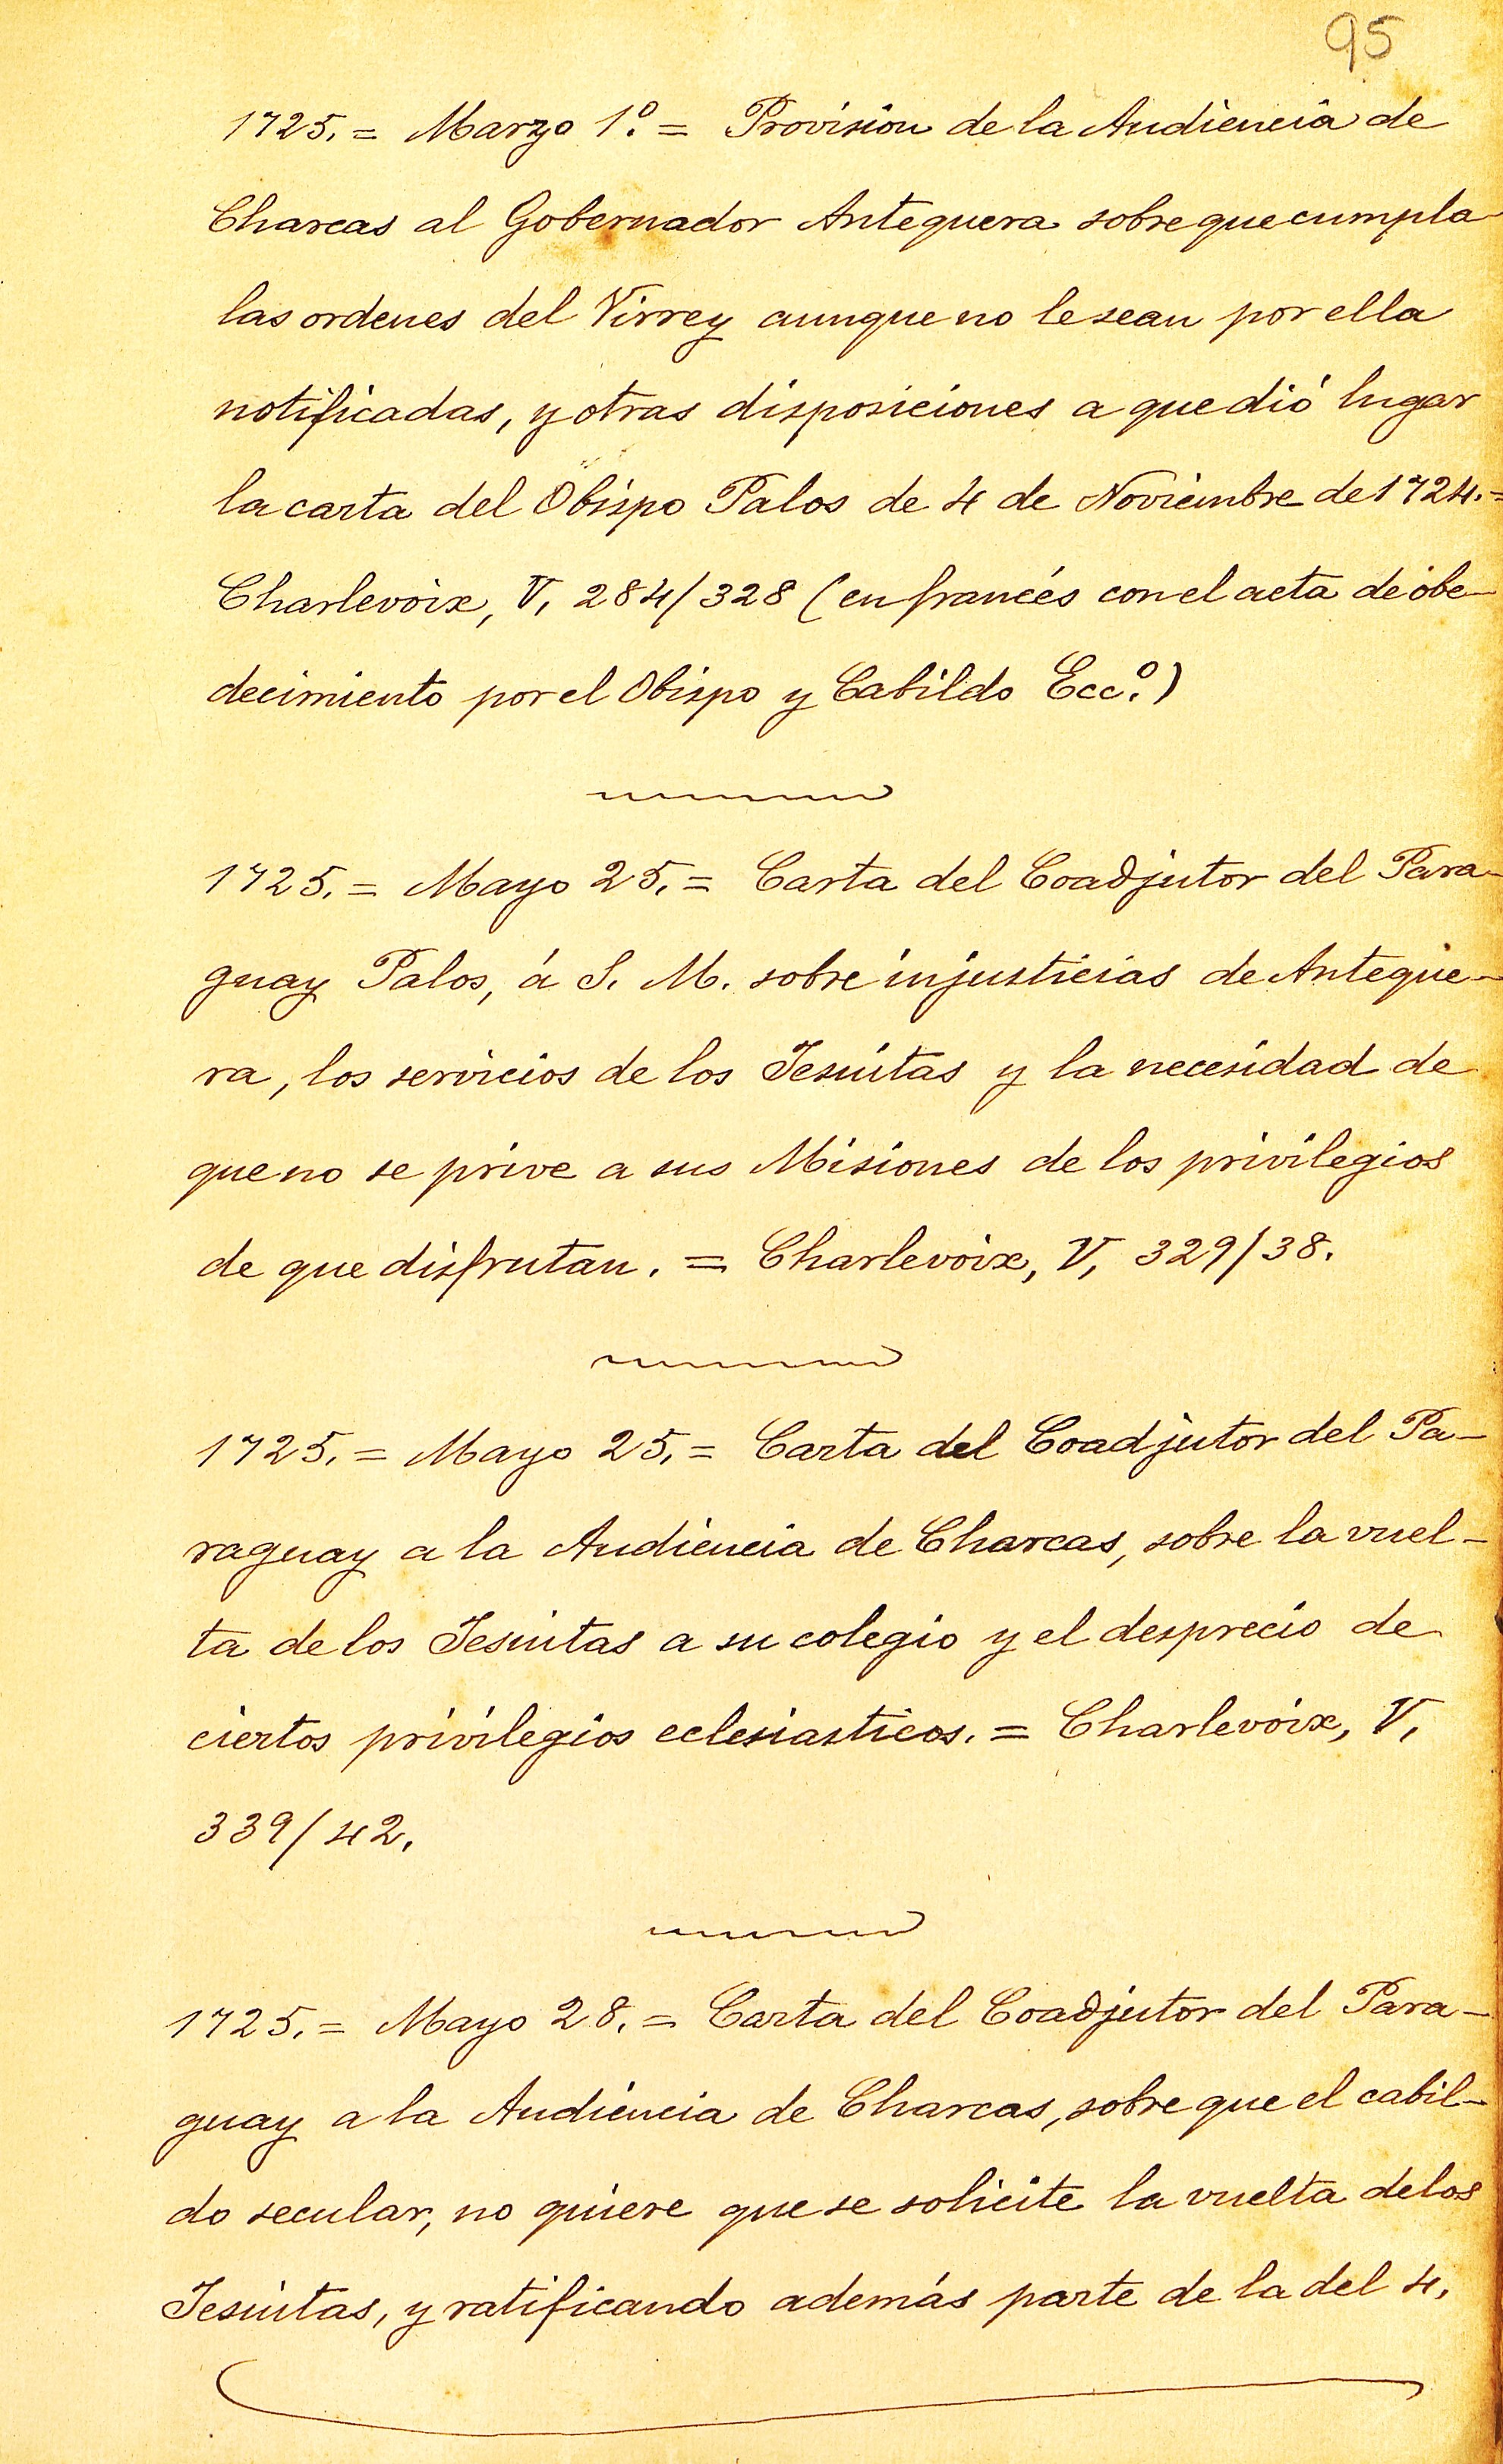 95
1725. = Marzo 1º. = Provision de la Audiencia de
Charcas al Gobernador Antequera sobre que cumpla
las ordenes del Virrey aunque no le sean por ella
notificadas, y otras disposiciones a que dió lugar
la carta del Obispo Palos de 4 de Noviembre de 1724. =
Charlevoix, V, 284/328 (en francés con el acta de obe-
decimiento por el Obispo y Cabildo Ecco.)
1725. = Mayo 25. = Carta del Coadjutor del Para-
guay Palos, á S. M. sobre injusticias de Anteque-
ra, los servicios de los Jesuitas y la necesidad de
que no se prive a sus Misiones de los privilegios
de que disfrutan. = Charlevoix, V, 329/38.
1725. = Mayo 25. = Carta del Coadjutor del Pa-
raguay a la Audiencia de Charcas, sobre la vuel-
ta de los Jesuitas a su colegio y el desprecio de
ciertos privilegios eclesiasticos. = Charlevoix, V,
339/42.
1725. = Mayo 28. = Carta del Coadjutor del Para-
guay a la Audiencia de Charcas, sobre que el cabil-
do secular, no quiere que se solicite la vuelta de los
Jesuitas, y ratificando además parte de la del 4.